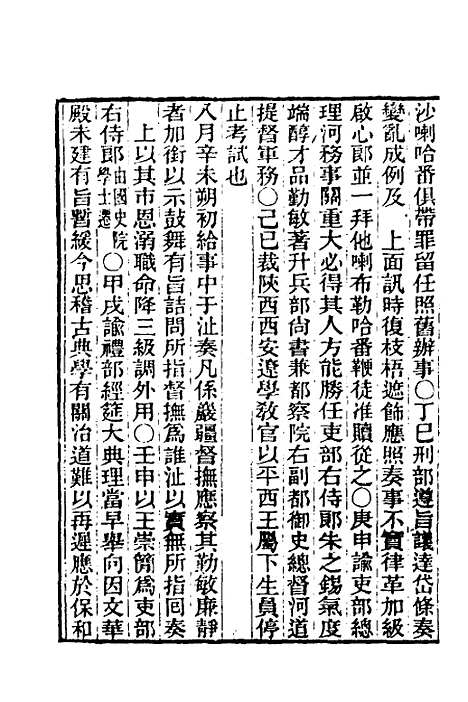 沙喇哈番俱帶罪留任照舊辦事〇丁巳刑部遵旨議達岱條奏
變亂成例及　上面訊時復枝梧遮飾應照奏事不實律革加級
啟心郎並一拜他喇布勒哈番鞭徒准贖從之〇庚申諭吏部總
理河務事關重大必得其人方能勝任吏部右侍郎朱之錫氣度
端醇才品勤敏著升兵部尚書兼都察院右副都御史總督河道
提督軍務〇己巳裁陝西西安遼學敎官以平西王屬下生員停
止考試也
八月辛未朔初給事中于沚奏凡係嚴疆督撫應察其勤敏廉靜
者加銜以示鼓舞有旨詰問所指督撫爲誰沚以實無所指囘奏
上以其市恩溺職命降三級調外用〇壬申以王崇簡爲吏部
右侍郎由國史院學士遷〇甲戌諭禮部經筵大典理當早舉向因文華
殿未建有旨暫緩今思稽古典學有關治道難以再遲應於保和